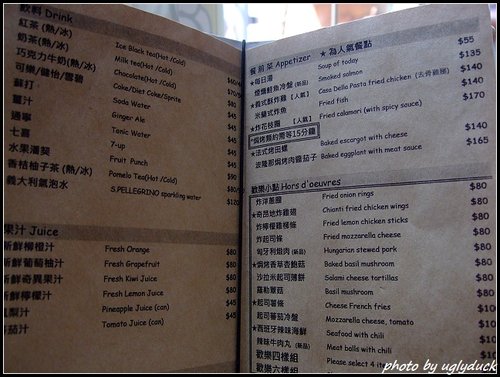 飲料 Drink
紅茶 (熱/冰) Ice Black tea(Hot /Cold)
奶茶(熱/冰) Milk tea(Hot /Cold)
巧克力牛奶(熱/冰) Chocolate(Hot /Cold)
可樂/健怡/雪碧 Coke/Diet Coke/Sprite
蘇打 Soda Water
薑汁 Ginger Ale
通寧 Tonic Water
七喜 7-up
水果潘契 Fruit Punch
香桔柚子茶 (熱/冰) Pomelo Tea(Hot /Cold) $80
義大利氣泡水 S.PELLEGRINO sparkling water $120
果汁 Juice
新鮮柳橙汁 Fresh Orange $80
新鮮葡萄柚汁 Fresh Grapefruit $80
新鮮奇異果汁 Fresh Kiwi Juice $80
新鮮檸檬汁 Fresh Lemon Juice $80
鳳梨汁 Pineapple Juice (can) $45
番茄汁 Tomato Juice (can) $45
餐前菜 Appetizer ★ 為人氣餐點
★每日湯 Soup of today $55
煙燻鮭魚冷盤 (新品) Smoked salmon $135
★義式酥炸雞 [人氣] Casa Della Pasta fried chicken (去骨雞腿) $140
米蘭式炸魚 Fried fish $140
★炸花枝圈 [人氣] Fried calamari (with spicy sauce) $170
*焗烤類約需等15分鐘
★法式烤田螺 Baked escargot with cheese $140
波隆那焗烤肉醬茄子 Baked eggplant with meat sauce $165
歡樂小點 Hors d'oeuvres
炸洋蔥圈 Fried onion rings $80
★奇昂地炸雞翅 Chianti fried chicken wings $80
炸檸檬雞柳條 Fried lemon chicken sticks $80
炸起司條 Fried mozzarella cheese $80
匈牙利燉肉 (新品) Hungarian stewed pork $80
★焗烤香草杏鮑菇 Baked basil mushroom $80
沙拉米起司薄餅 Salami cheese tortillas $80
羅勒蘑菇 Basil mushroom $80
★起司薯條 Cheese French fries $80
起司蕃茄冷盤 Mozzarella cheese, tomato $100
★西班牙辣味海鮮 Seafood with chili $100
辣味牛肉丸 (新品) Meat balls with chili $100
歡樂四樣組 Please select 4 items
歡樂六樣組
photo by uglyduck